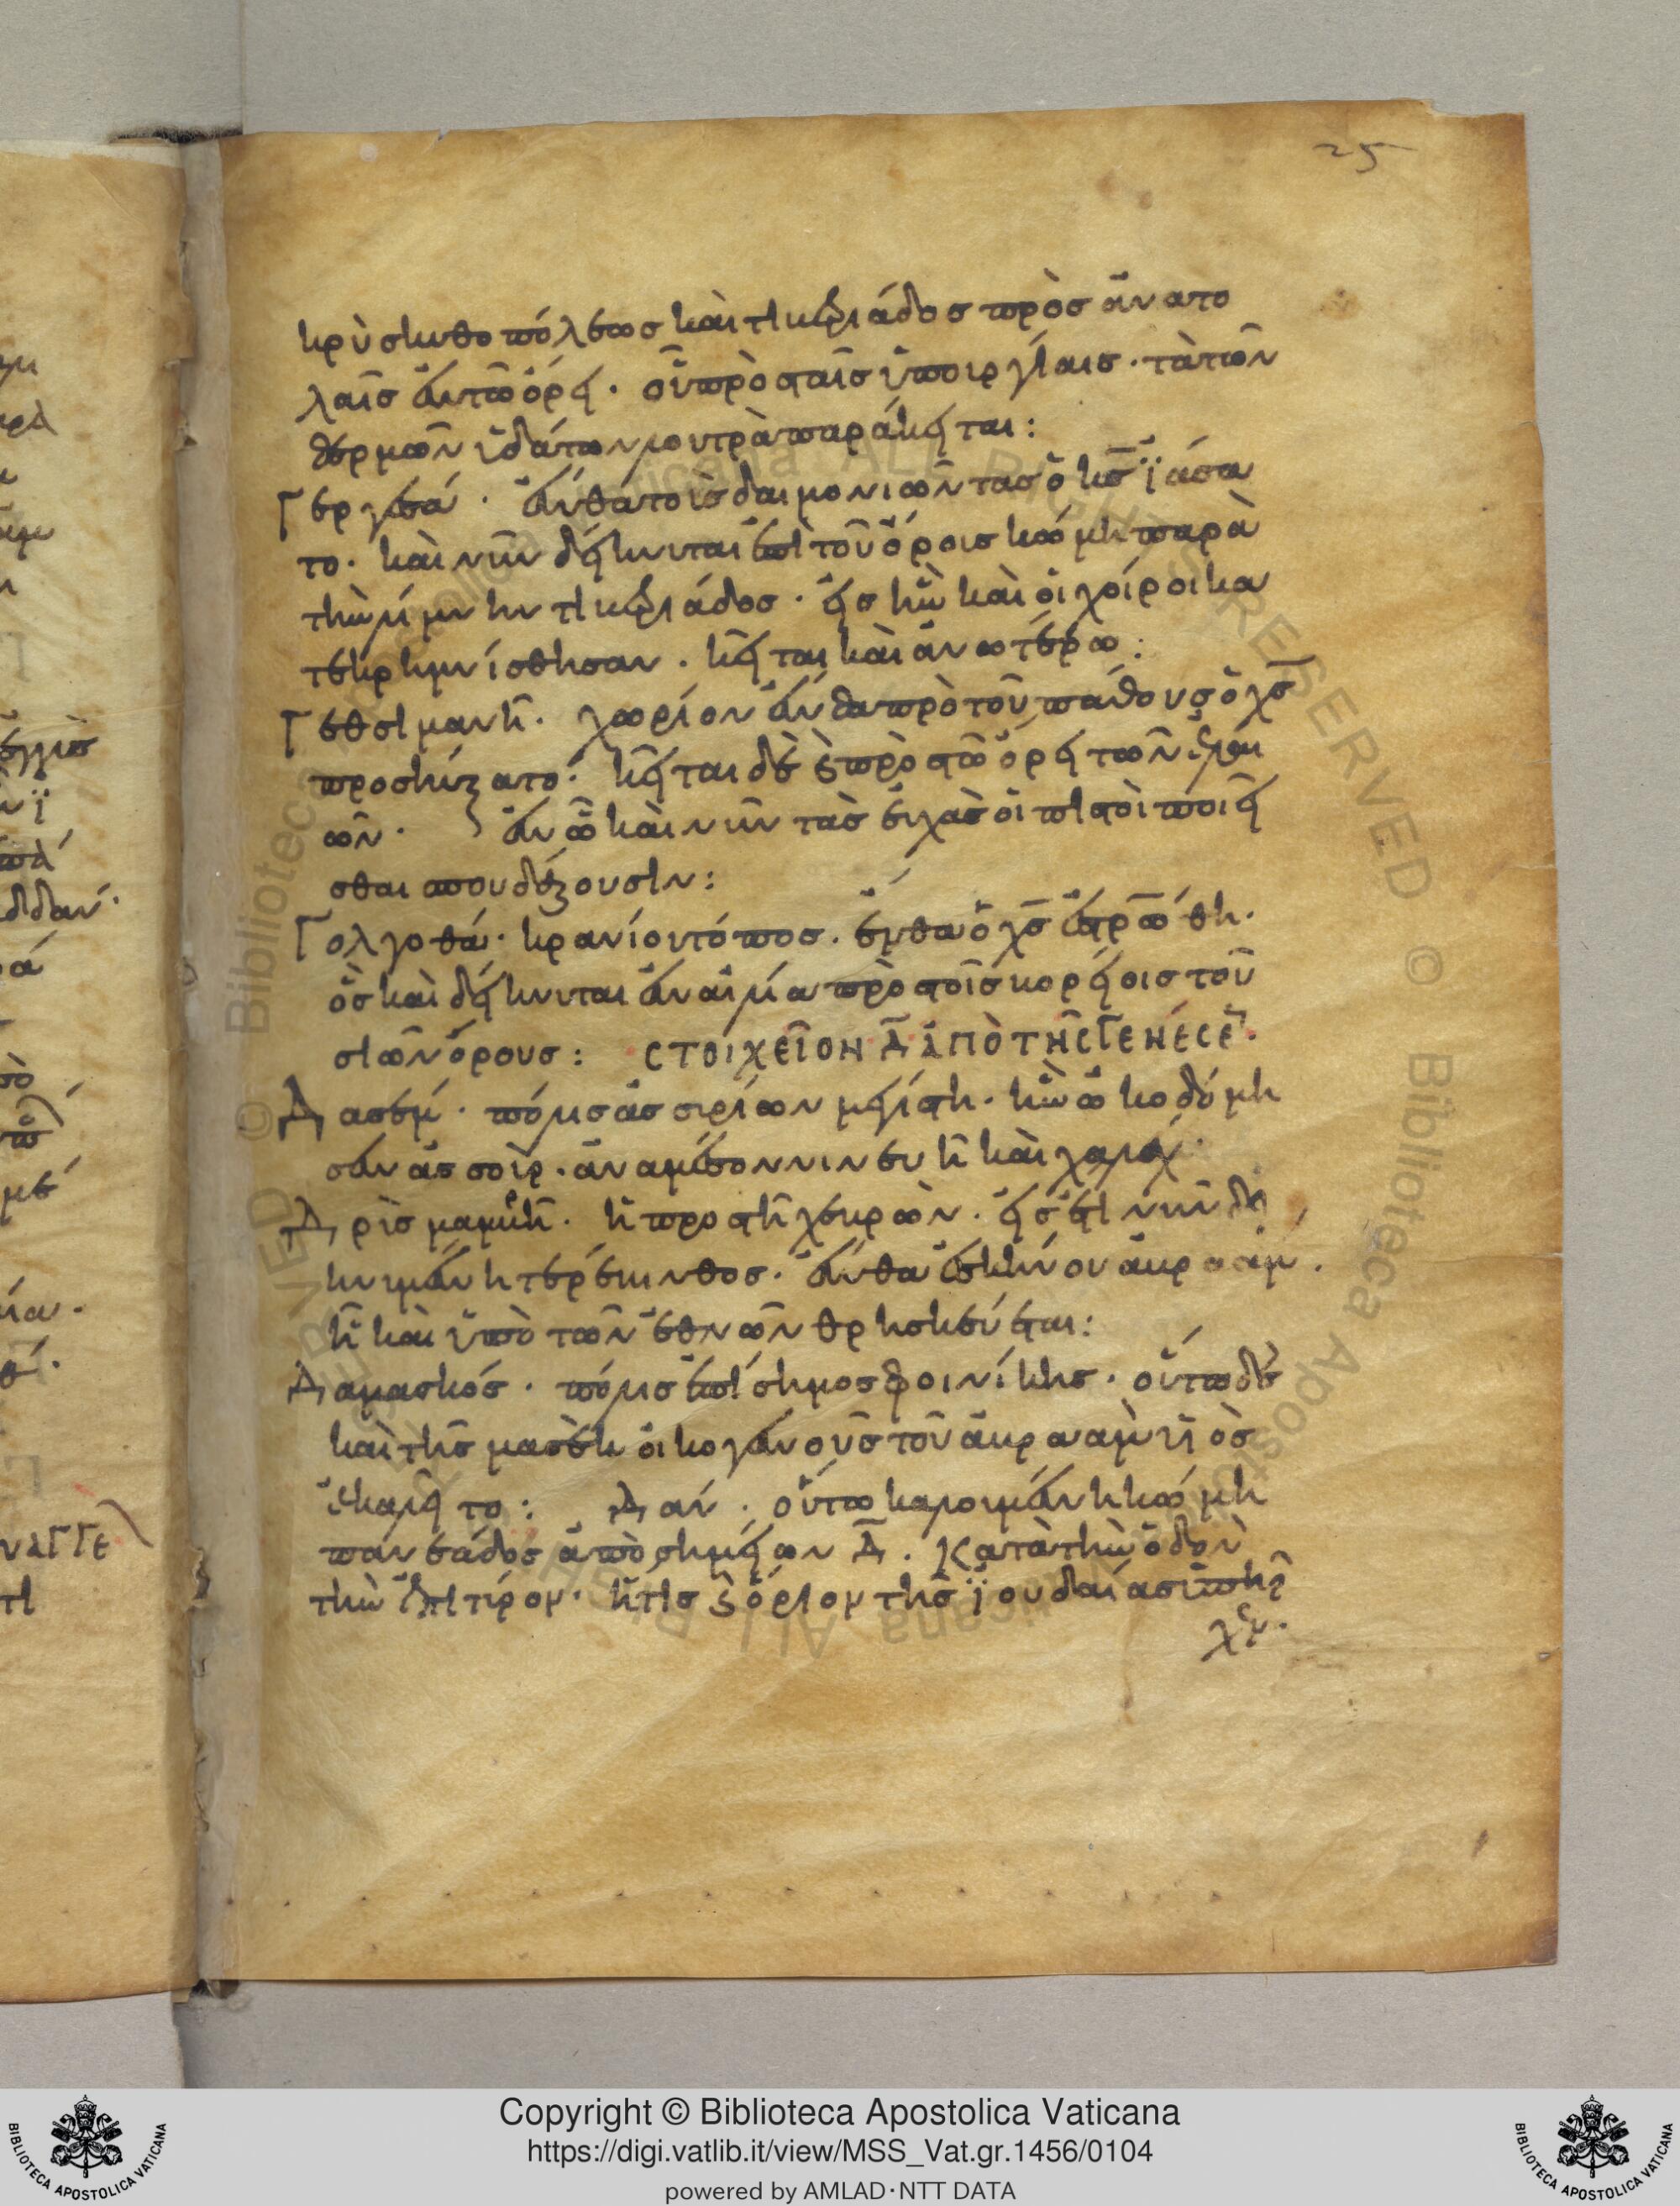 25
κρὺ σκυθοπόλεως καὶ τιβεριάδος πρὸς ἀνατο
λαῖς ἐν τῶ ὄρει. οὗ πρὸς ταῖς ὑπουργίαις. τὰ τῶν
θερμῶν ὑδάτων λουτρὰ παράκειται:
Γεργεσά. ἔνθα τοὺς δαιμονιῶντας ὁ κς ϊάσα
το. καὶ νῦν δείκνυται ἐπὶ τοῦ ὄρους κώμη παρὰ
τὴν λίμνην τιβεριάδος. εἰς ἣν καὶ οἱ χοίροι κα
τεκρημνίσθησαν. κεῖται καὶ ἀνωτέρω:
Γεθσιμανῆ. χωρίον ἔνθα πρὸ τοῦ πάθους ὁ χς
προσηύξατο. κεῖται δὲ πρὸς τῶ ὄρει τῶν ἐλαι
ῶν. ἐν ῶ καὶ νῦν τὰς εὐχὰς οἱ πιστοὶ ποιεῖ
σθαι σπουδάζουσιν:
Γολγοθά. κρανίου τόπος. ἔνθα ὁ χς ἐσταυρώθη.
ὃς καὶ δείκνυται ἐν αἰλία πρὸς τοῖς βορείοις τοῦ
σιὼν ὄρους: ΣΤΟΙΧΕῖΟΝ Δ ἀΠὸ ΤῆΣ ΓΕΝέΣΕ.
Δασέμ. πόλις ἀσσυρίων μεγίστη. ἣν ὠκοδόμη
σεν ἀσσούρ. ἀναμέσον νινευῆ καὶ χαλάχ.
Δρῦς μαμβρῆ. ἡ προς τῆ χεβρών. εἰς ἔτι νῦν δει
κνυμένη τερέβινθος. ἔνθα ἐσκήνου ἀβραάμ.
ἣ καὶ ὑπὸ τῶν ἐθνῶν θρησκεύεται:
Δαμασκός. πόλις ἐπίσημος φοινίκης. οὕτω δὲ
καὶ τῆς μασὲκ οἰκογενοῦς τοῦ ἀβραὰμ υἱὸς
ἐκαλεῖτο: Δάν. οὕτω καλουμένη κώμη
πανεάδος ἀπὸ σημείων Δ. κατὰ τὴν ὁδὸν
τὴν ἐπὶ τύρον. ἥτις ὅριον τῆς ϊουδαίας ὑπῆρ
χεν.
Copyright © Biblioteca Apostolica Vaticana
https://digi.vatlib.it/view/MSS_Vat.gr.1456/0104
powered by AMLAD·NTT DATA